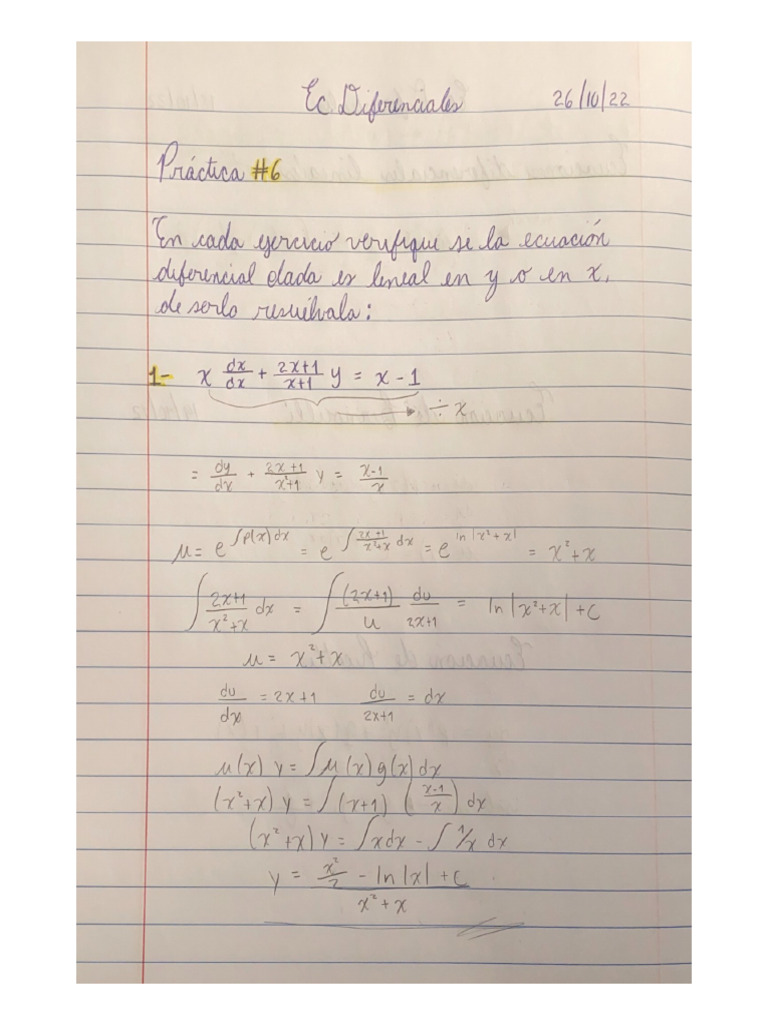 Ec Diferenciales 26/10/22
Práctica #6
En cada ejercicio verifique si la ecuación
diferencial dada es lineal en y o en x,
de serlo resuélvala:
1- x dx/dx + (2x+1)/(x+1) y = x - 1
÷ x
= dy/dx + (2x+1)/(x²+1) y = (x-1)/x
μ = e^∫p(x)dx = e^∫(2x+1)/(x²+x) dx = e^ln|x²+x| = x²+x
∫ (2x+1)/(x²+x) dx = ∫ (2x+1)/u du/(2x+1) = ln|x²+x| + C
u = x²+x
du/dx = 2x+1 du/(2x+1) = dx
μ(x) y = ∫μ(x)g(x)dx
(x²+x) y = ∫(x+1) ((x-1)/x) dx
(x²+x) y = ∫xdx - ∫1/x dx
y = (x²/2 - ln|x| + C)/(x²+x)